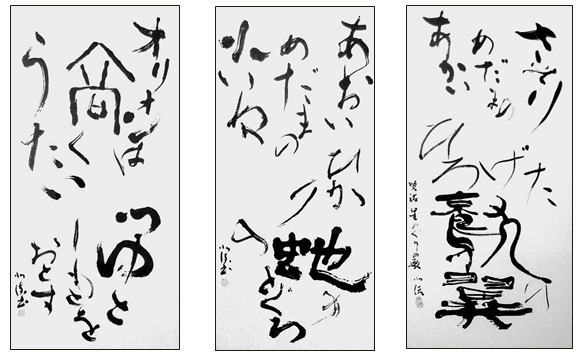 あかい
めだまの
さそり
ひろげた
賢治 星めぐりの歌
あおい
めだまの
小いぬ
ひかりの
蛇の
とぐろ
オリオンは
高く
うたい
つゆと
しもとを
おとす